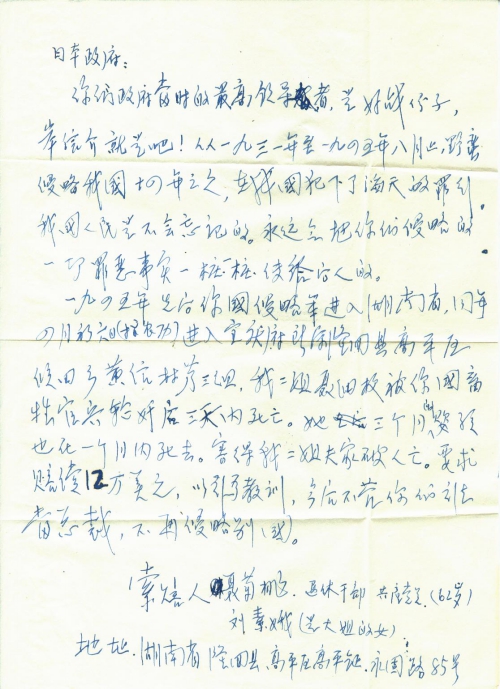 日本政府：
你们政府当时的最高领导者，是好战份子，
岸信介就是吧！从一九三一年至一九四五年八月止，野蛮
侵略我國十四年之久，在我國犯下了滔天的罪行
我國人民是不会忘记的。永远会把你们侵略的
一切罪恶事实一桩桩传给后人的。
一九四五年 你國侵略军进入湖南省，同年
四月初六日(农历)进入宝庆府 隆回县高平区
侯田乡黄信村 三组，我二姐聂回枚被你國畜
牲官兵轮奸后三天内死亡。她 三个月的婴孩
也在一个月内死去。害得我二姐夫家破人亡。要求
赔偿12万美元，以引为教训，今后不管你们谁去
当总裁，不再侵略别国。
索赔人 聂菊桃 退休干部 共产党员(62岁)
刘素娥(是大姐的女)
地址：湖南省隆回县高平区高平镇永固路85号